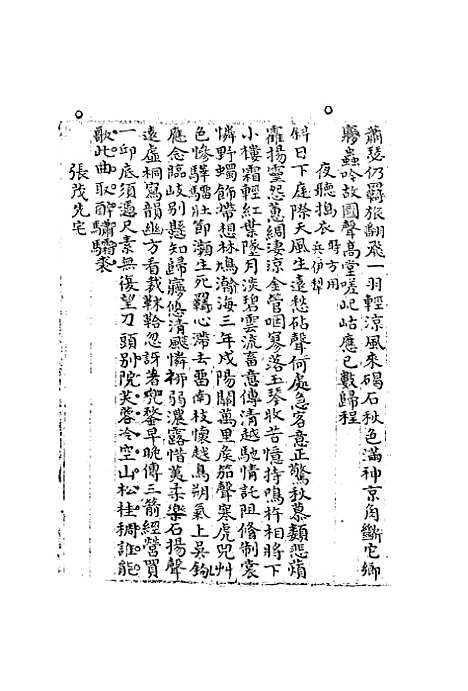 蕭瑟仍羇旅翩飛一羽輕涼風來碣石秋色滿神京角斷它鄉
夢蟲吟故國聲高堂嗟屺岵應已數歸程
夜聽搗衣時方用兵伊犂
斜日下庭際天風生遠愁砧聲何處急客意正驚秋慕類悲殯
靃揚靈怨蕙綢淒涼金管咽寥落玉琴收苦憶持鳴杵相將下
小樓霜輕紅葉墜月淡碧雲流畜意傳清越馳情託阻脩制裳
憐野蠋飾帶想林鳩瀚海三年戍陽關萬里矦笳聲寒虎兕艸
色慘驊騮壯節瀕生死羇心滯去畱南枝懷越鳥朔氣上吳鉤
應念臨岐別懸知歸㝱悠清飈憐袗弱濃露惜荑柔樂石揚聲
遠虛桐寫韻幽方看裁韎韐忽訝著兜鍪早晚傳三箭經營買
一邱底須遺尺素無復望刀頭別院芙蓉冷空山松桂稠誰能
歌此曲取醉驌驦裘
張茂先宅